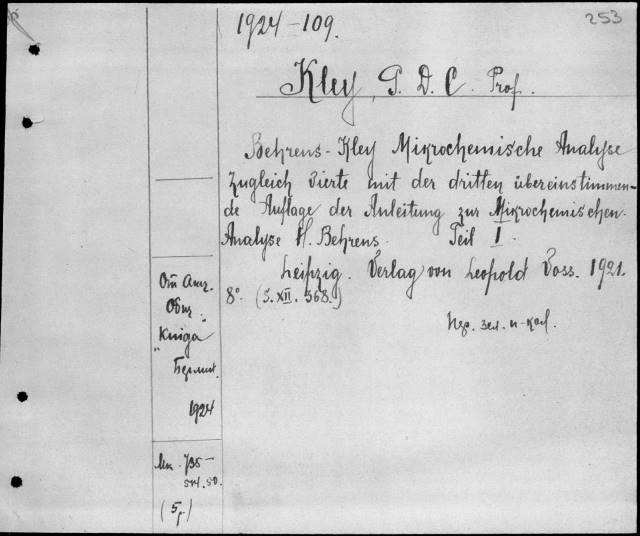 1924-109.
253
Kley, P. D. C. Prof.
Behrens-Kley Mikrochemische Analyse
Zugleich vierte mit der dritten übereinstimmen-
de Auflage der Anleitung zur Mikrochemischen
Analyse H. Behrens. Teil I.
Leipzig. Verlag von Leopold Voss. 1921.
8°. (S. XII. 368.)
Отъ
Книга
1924
(5